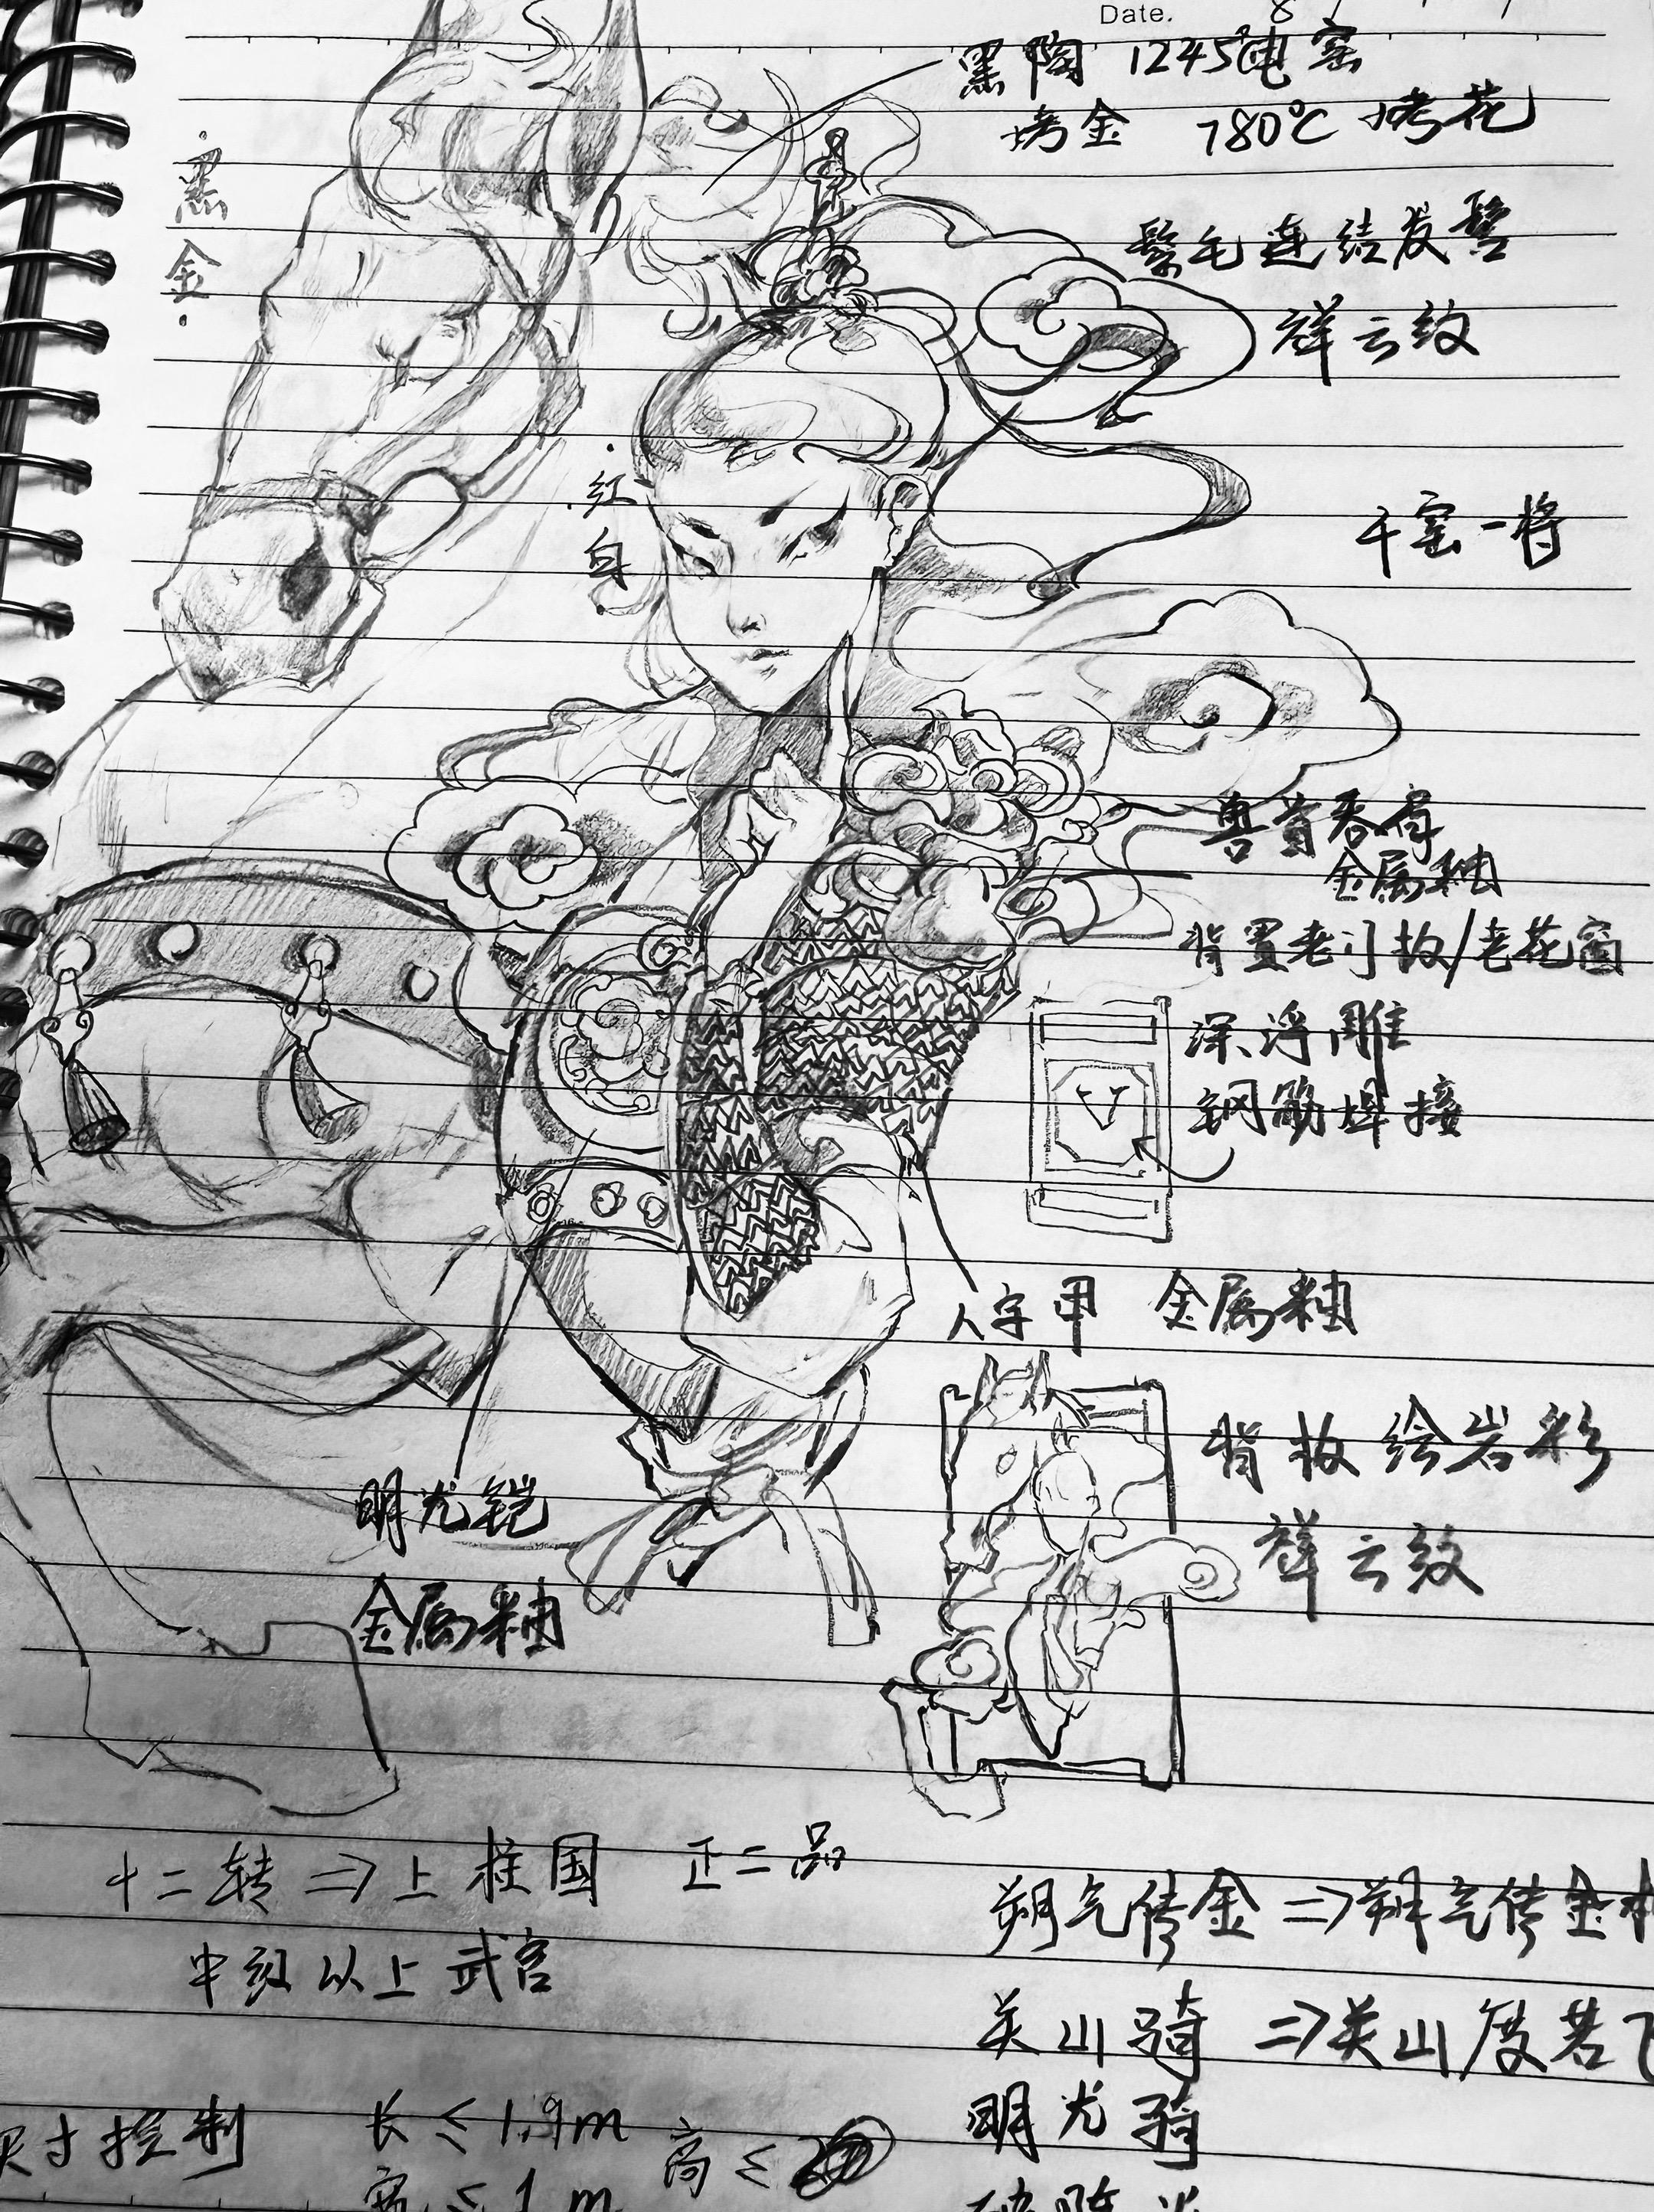 Date. 8
黑陶 1245°电窑
烤金 780℃ 烤花
黑金
鬃毛连结发髻
祥云纹
红白
千窑一将
兽首吞肩
金属釉
背置老门板/老花窗
深浮雕
钢筋焊接
人字甲 金属釉
背板绘岩彩
祥云纹
明光铠
金属釉
十二转⇒上柱国 正二品
中级以上武官
朔气传金⇒朔气传金
关山骑⇒关山度若飞
明光骑
尺寸控制 长≤1.9m 高≤
宽≤1m